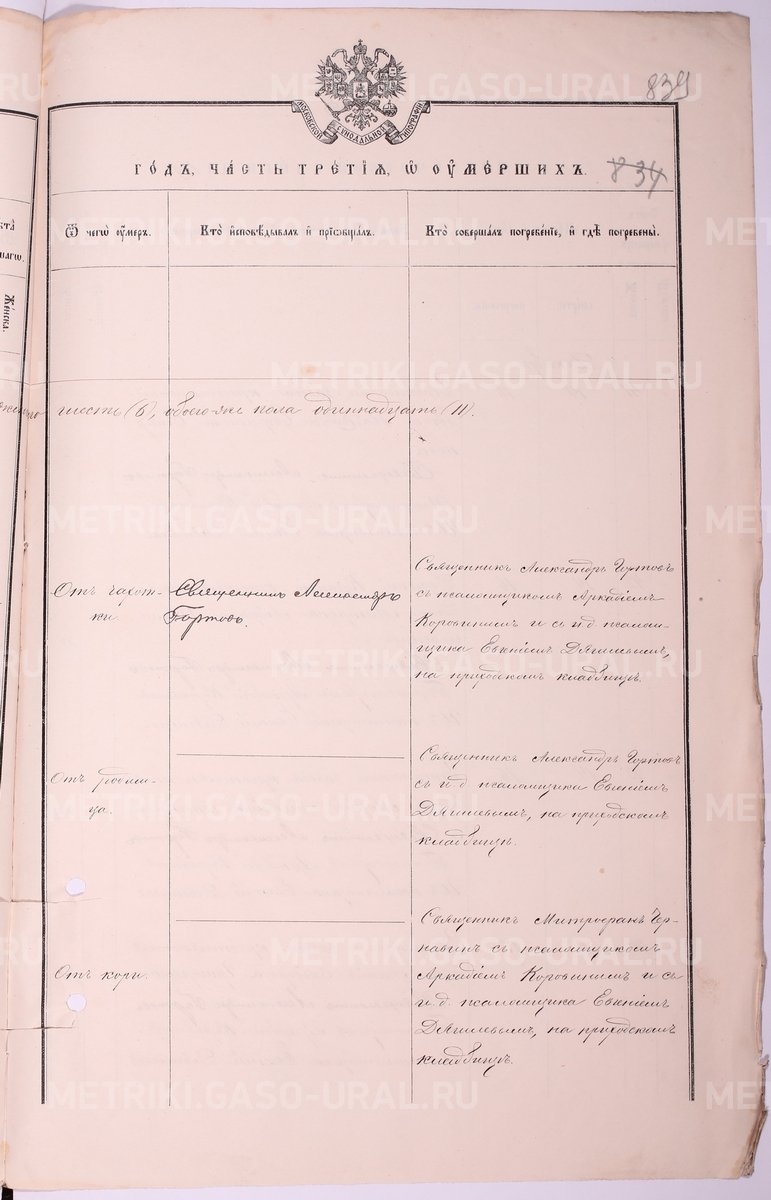 839
МОСКОВСКОЙ СУНОДАЛЬНОЙ ТИПОГРАФІИ
ГОДЪ, ЧАСТЬ ТРЕТІЯ, Ѿ ОУМЕРШИХЪ.
834
Ѿ чегѡ оумеръ.
Кто исповѣдывалъ и пріобщалъ.
Кто совершалъ погребеніе, и гдѣ погребены.
Женска.
шесть (6), обоего-же пола одиннадцать (11).
Отъ чахот-
ки.
Священникъ Александръ
Гортовъ.
Священникъ Александръ Гортовъ
съ псаломщикомъ Аркадіемъ
Коровинымъ и съ и.д. псалом-
щика Евгеніемъ
на приходскомъ кладбищѣ.
Отъ родим-
ца.
Священникъ Александръ Гортовъ
съ и.д. псаломщика Евгеніемъ
на приходскомъ
кладбищѣ.
Отъ кори.
Священникъ Митрофанъ Чер-
навинъ съ псаломщикомъ
Аркадіемъ Коровинымъ и съ
и.д. псаломщика Евгеніемъ
на приходскомъ
кладбищѣ.
METRIKI.GASO-URAL.RU